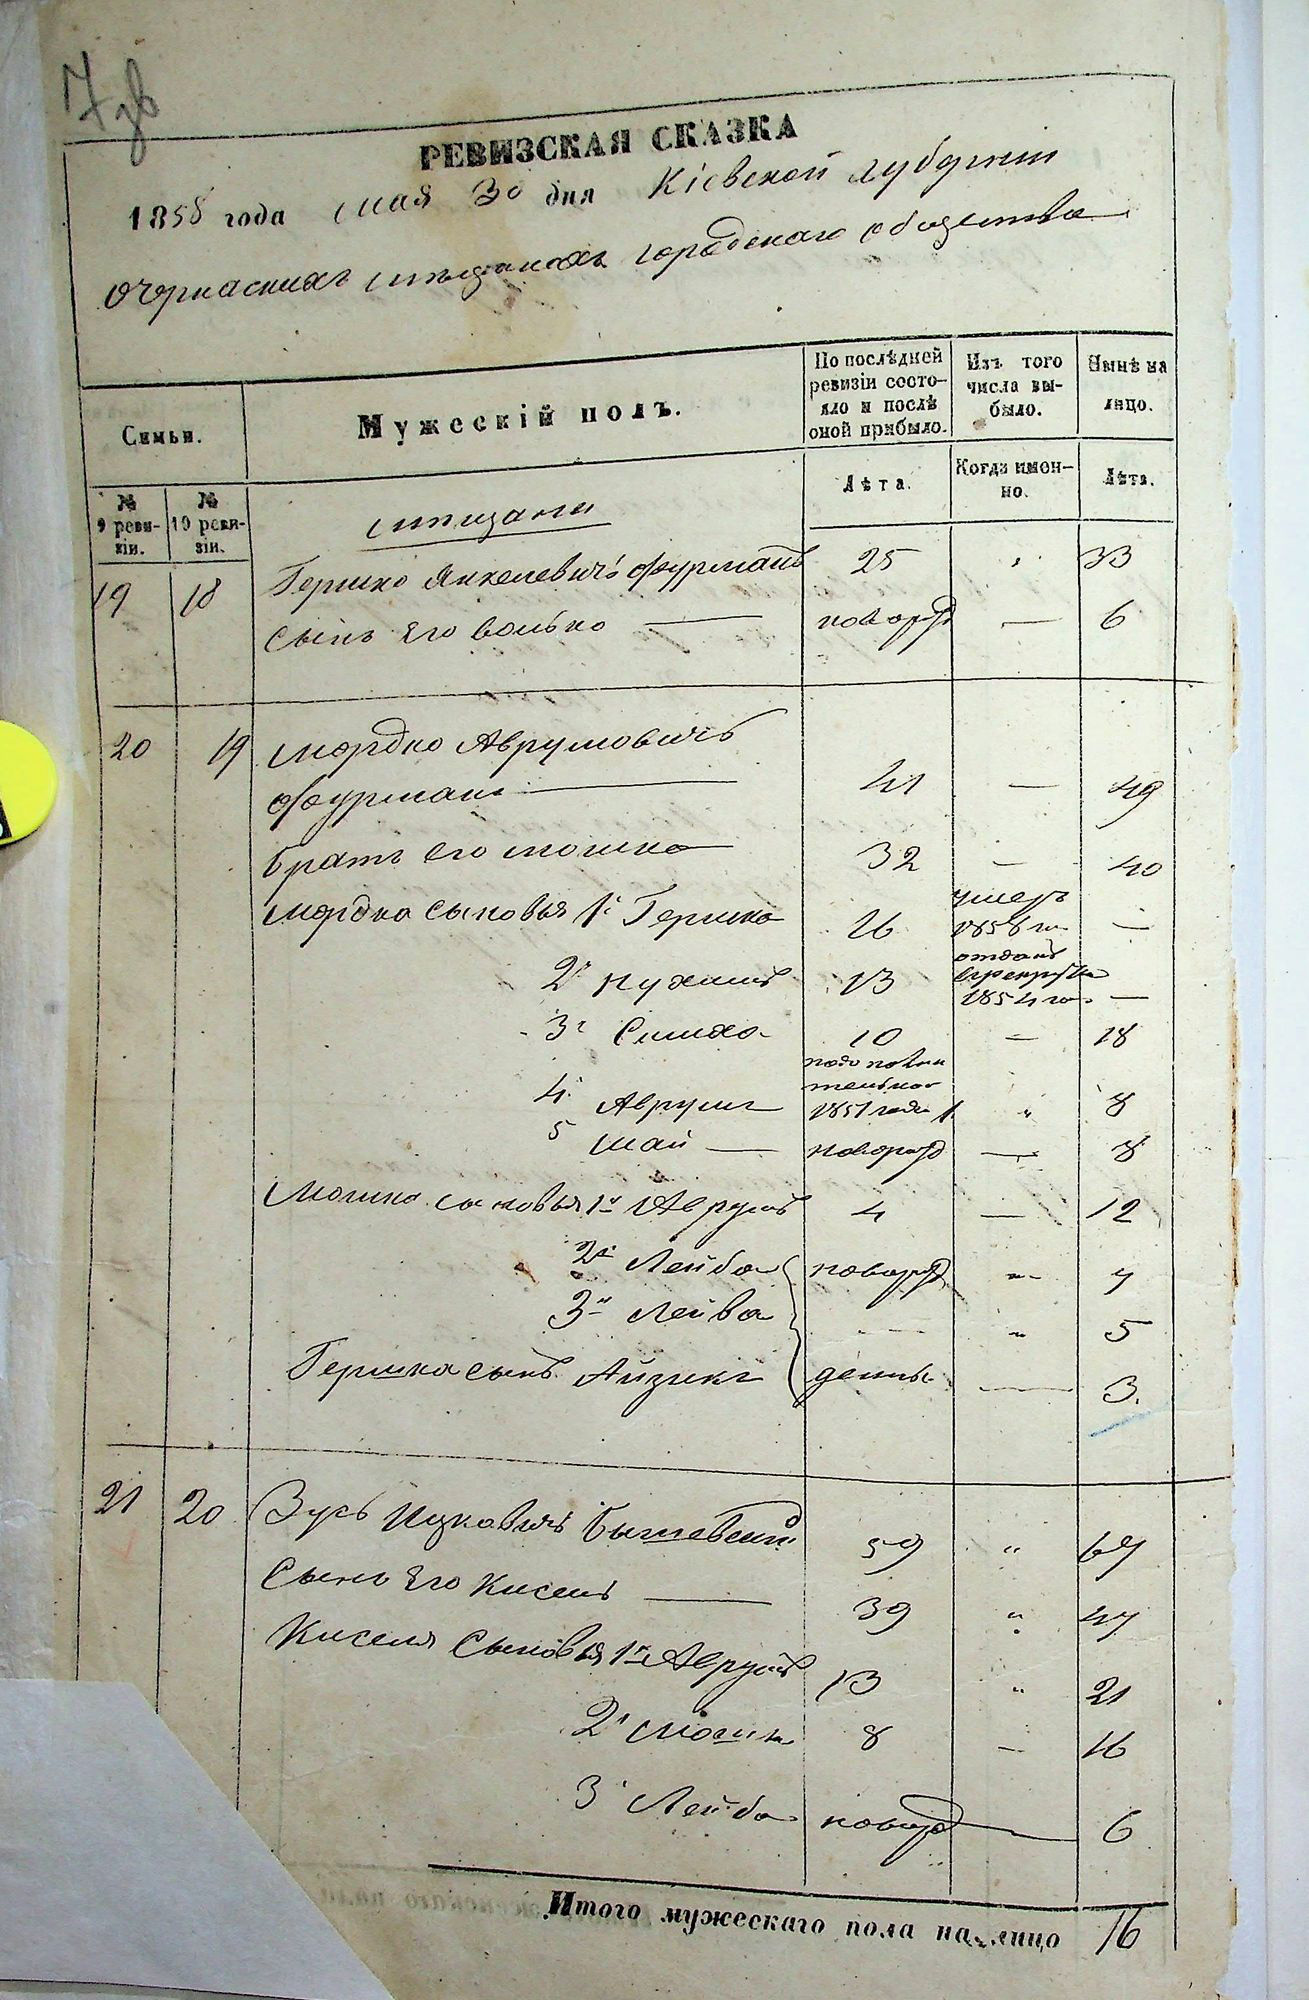 7 зв
РЕВИЗСКАЯ СКАЗКА
1858 года мая 30 дня Кіевской губерніи
о черкаскихъ мѣщанахъ городскаго общества
Симьи.
Мужескій полъ.
По послѣдней ревизіи состояло и послѣ оной прибыло.
Изъ того числа выбыло.
Нынѣ на лицо.
№ 9 ревизіи.
№ 10 ревизіи.
Лѣта.
Когда именно.
Лѣта.
мѣщани
19 18 Гершко Янкелевичъ Фурманъ 25 " 33
сынъ Его Волько — новорд — 6
20 19 Мордко Аврумовичъ
Фурманъ — 41 — 49
братъ Его Мошко 32 — 40
Мордка сыновья 1й Гершко 16 умеръ 1856 го —
2й Нухимъ 13 отданъ в рекруты 1854 го —
3й Симха 10 — 18
4й Аврумъ 1851 года 1. " 8
5 Шай — новорд — 8
Мошка сыновья 1й Аврумъ 4 — 12
2й Лейба новорд " 7
3й Лейва " 5
Гершка сынъ Айзикъ денны — 3.
21 20 Зусь Ицковичъ 59 " 67
Сынъ Его Кисель — 39 " 47
Киселя Сыновья 1й Аврумъ 13 " 21
2й Мошко 8 — 16
3й Лейба новорд — 6
Итого мужескаго пола на-лицо 16